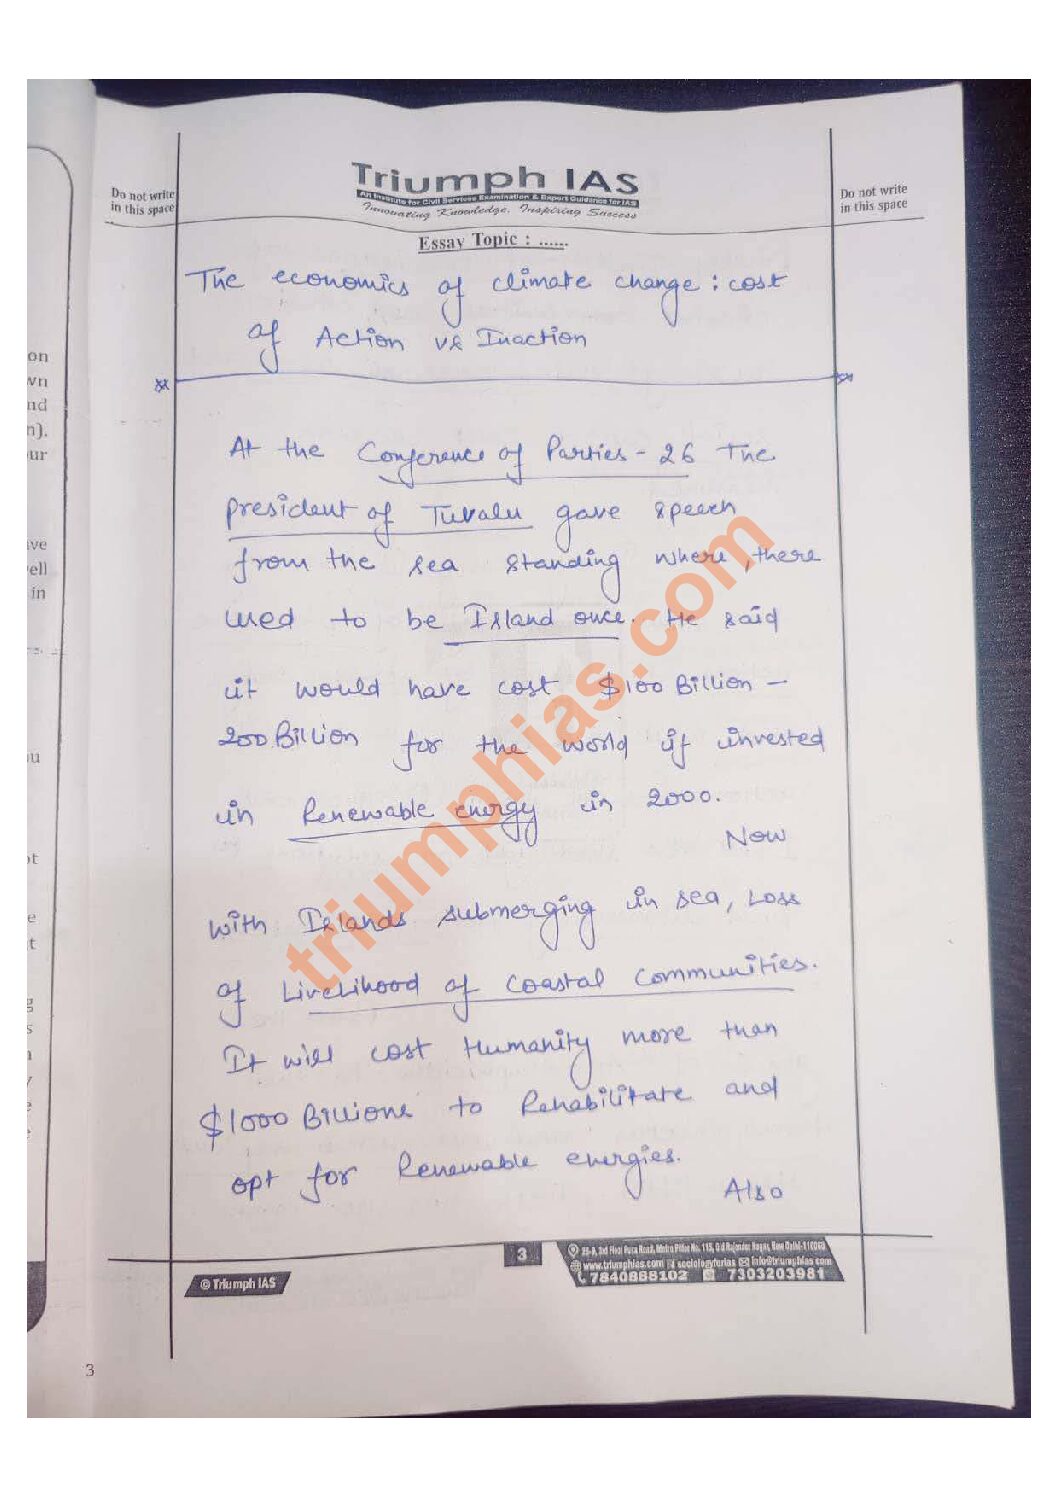 Do not write
in this space
Triumph IAS
An Institute for Civil Services Examination & Expert Guidance for IAS
Innovating Knowledge, Inspiring Success
Do not write
in this space
Essay Topic : ......
The economics of climate change : cost
of Action vs Inaction
on
wn
nd
n).
ur
ive
ell
in
ou
ot
e
t
g
s
y
e
At the Conference of Parties - 26 The
president of Tuvalu gave speech
from the sea standing where, there
used to be Island once. He said
it would have cost $100 Billion -
200 Billion for the world if invested
in Renewable energy in 2000.
Now
with Islands submerging in sea, Loss
of Livelihood of Coastal Communities.
It will cost Humanity more than
$1000 Billions to Rehabilitate and
opt for Renewable energies.
Also
triumphias.com
3
© Triumph IAS
www.triumphias.com sociologyforias info@triumphias.com
7840888102 7303203981
3